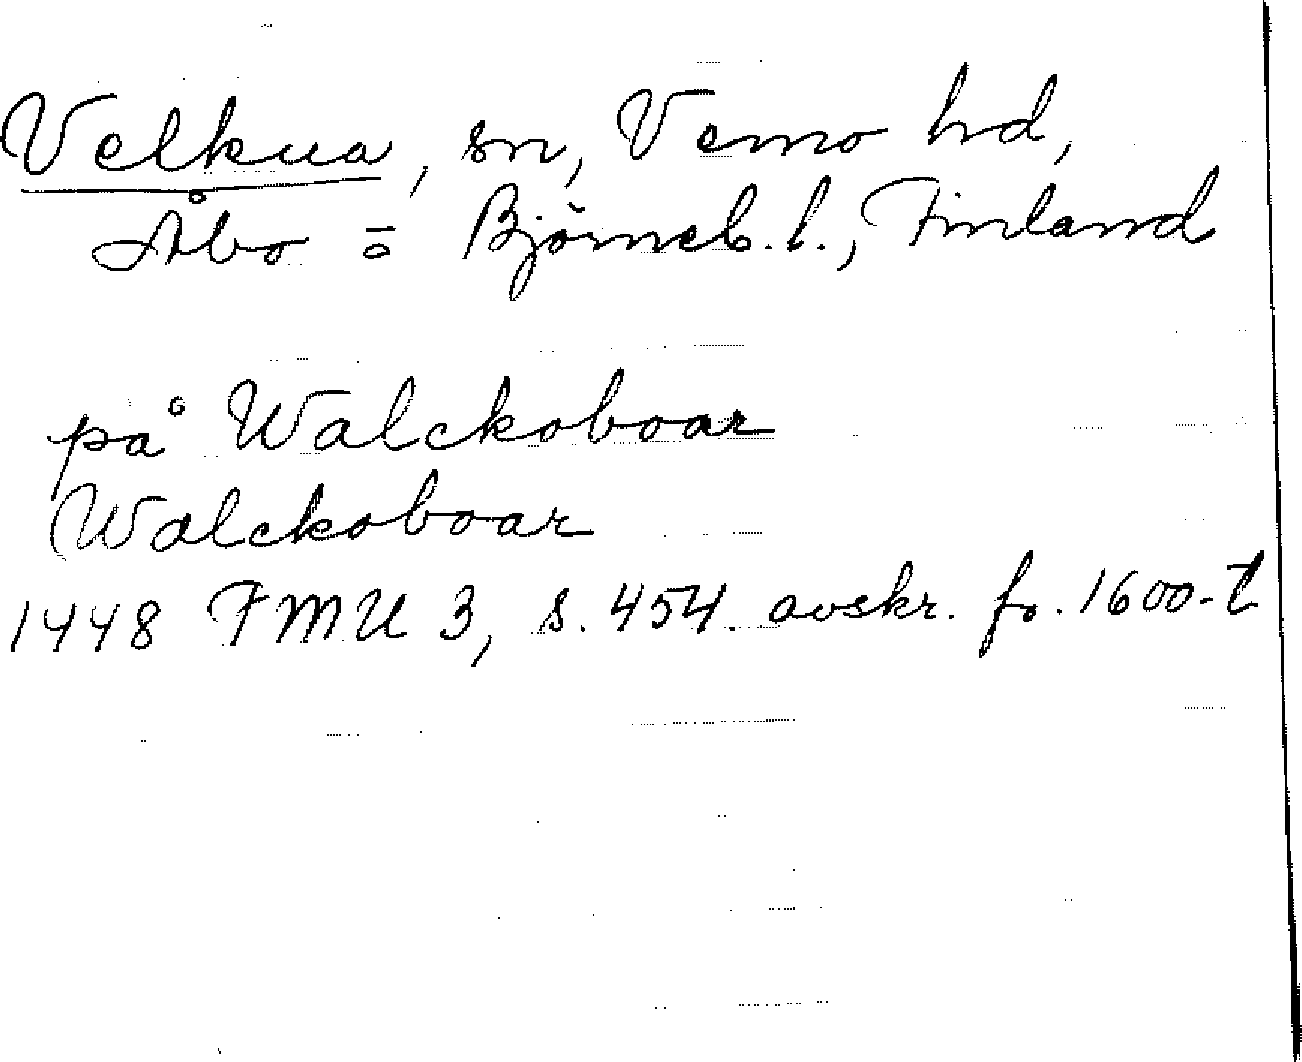 Velkua, sn, Vemo hd,
Åbo o Björneb. l., Finland
på Walckoboar
Walckoboar
1448 FMU 3, s. 454. avskr. fr. 1600-t